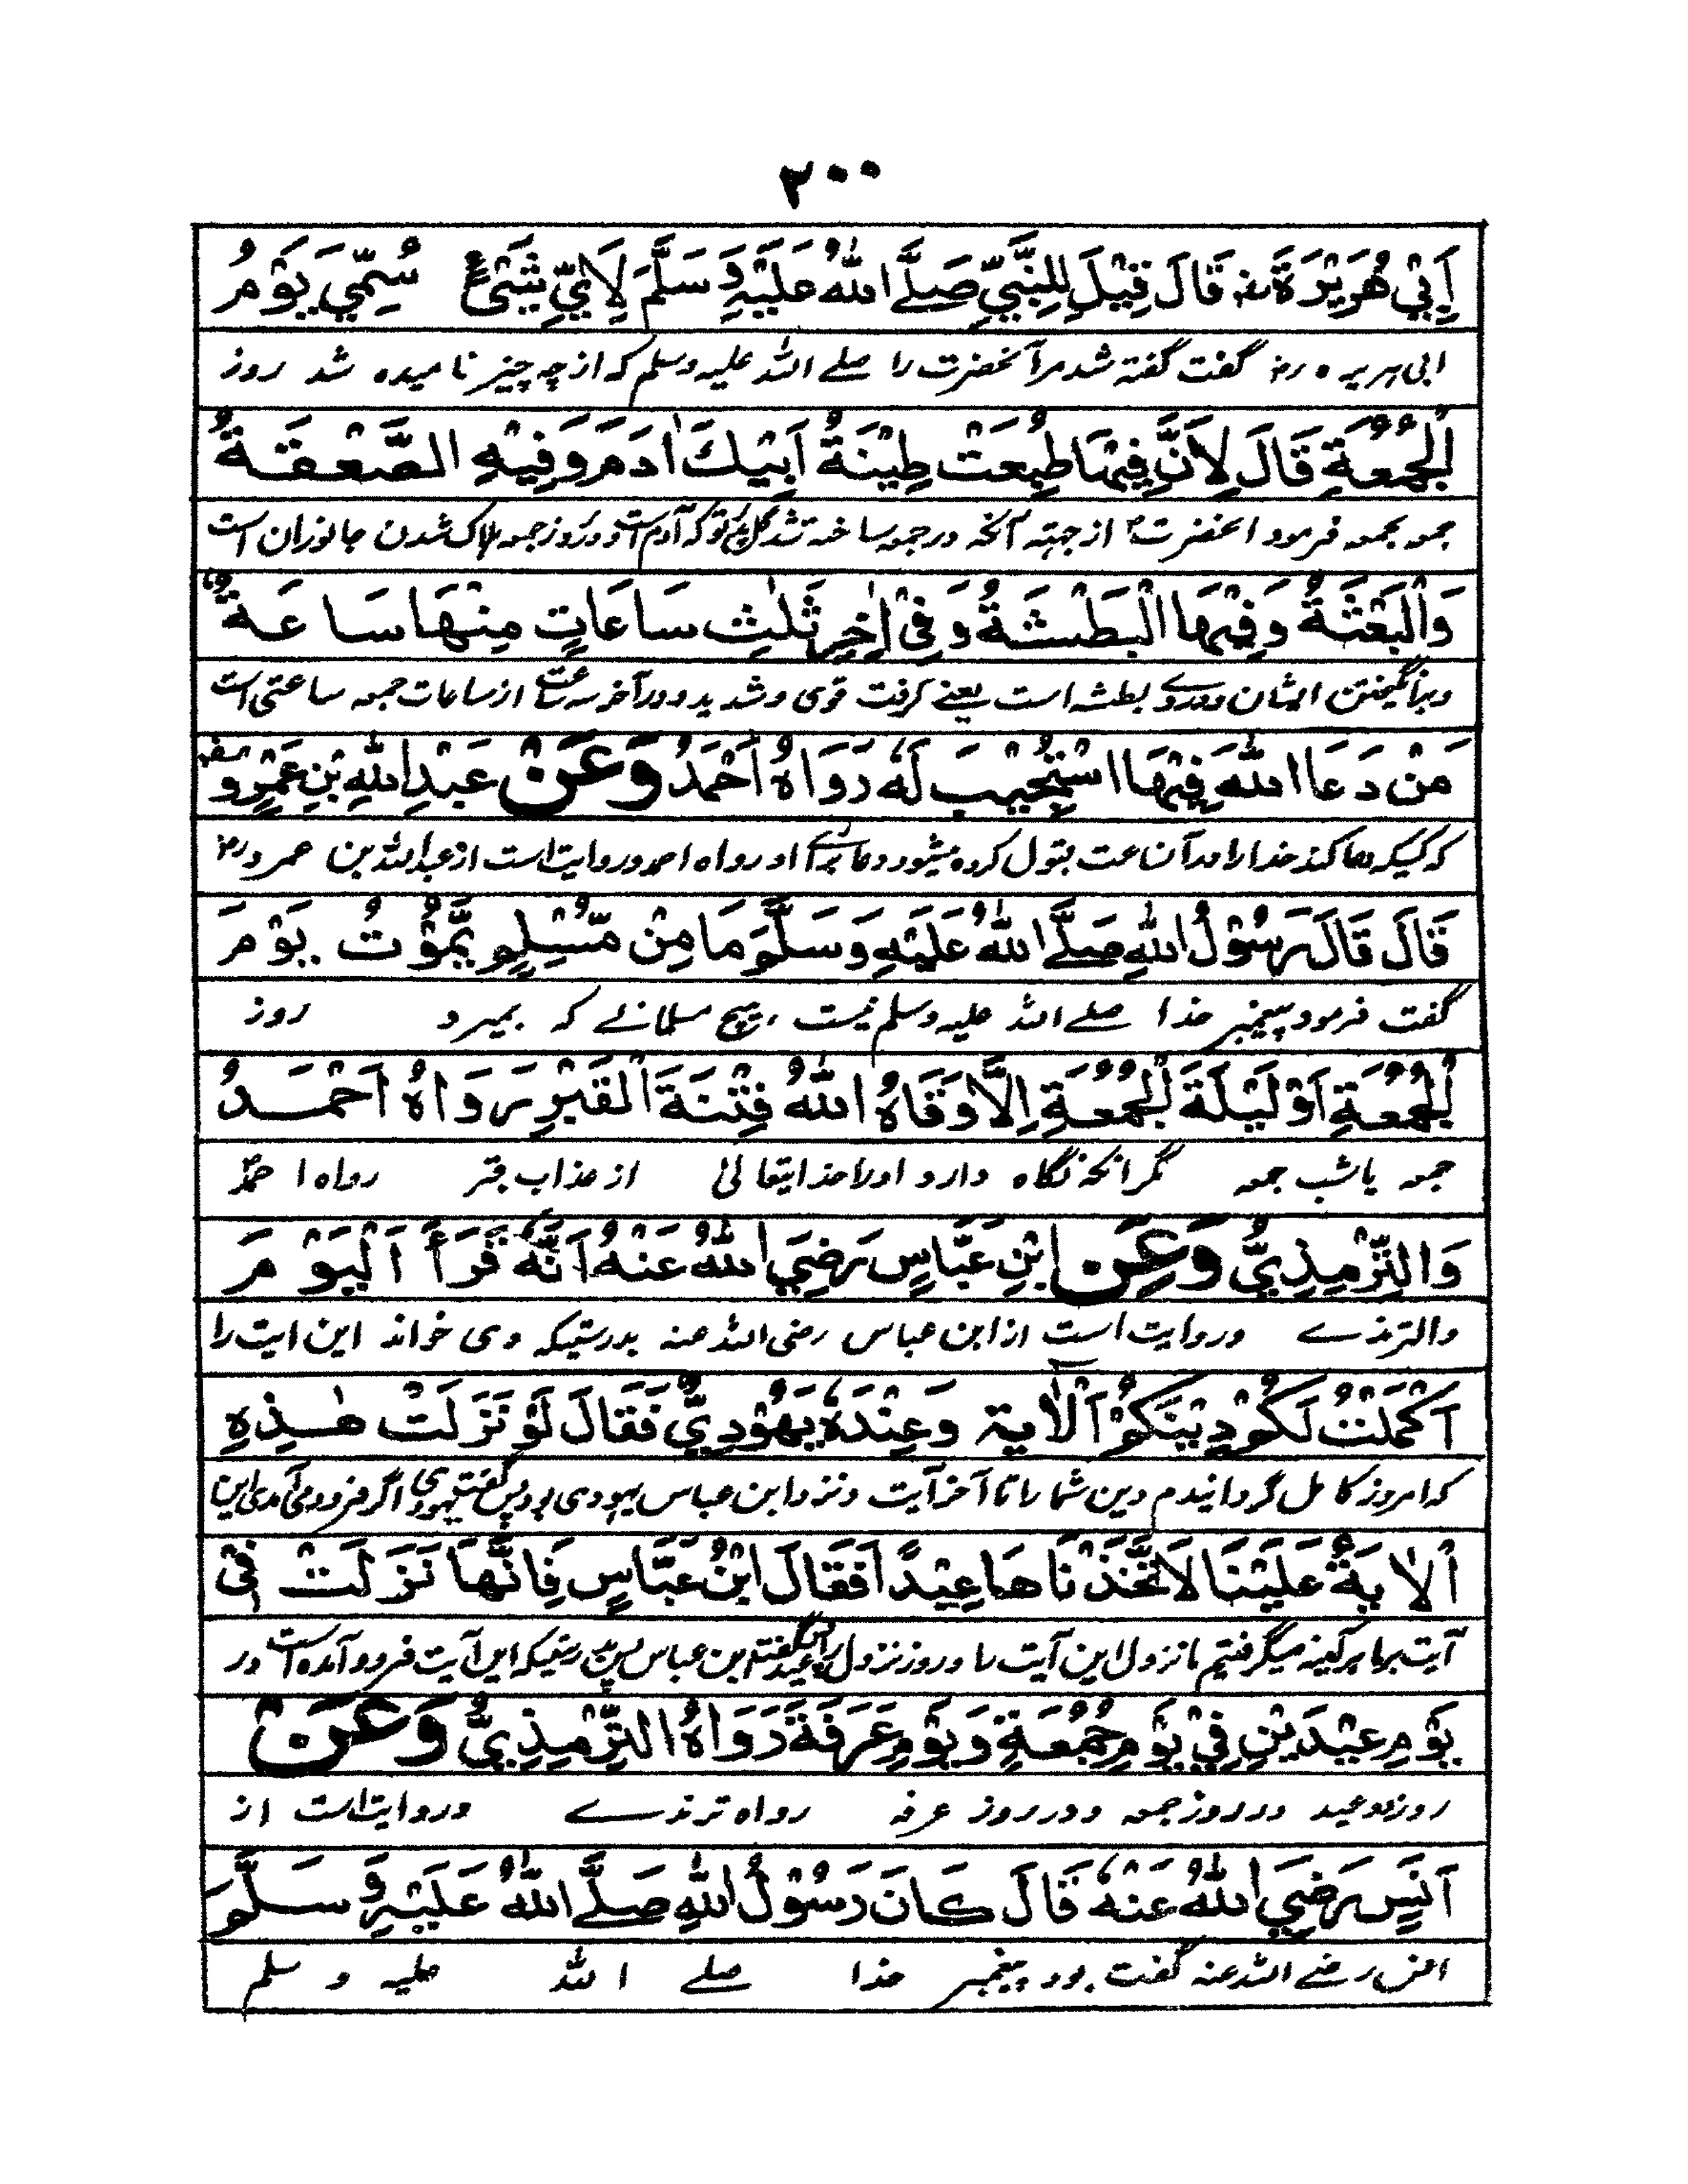 ۲۰۰
اَبِيْ هُرَيْرَةَ رضـ قَالَ قِيْلَ لِلنَّبِيِّ صَلَّے اللّٰهُ عَلَيْهِ وَسَلَّمَ لِاَيِّ شَيْءٍ سُمِّيَ يَوْمُ
ابی ہریرہ رضـ گفت گفتہ شد مر آنحضرت را صلے اللہ علیہ وسلم کہ از چہ چیز نامیدہ شد روز
الْجُمُعَةِ قَالَ لِاَنَّ فِيْهَا طُبِعَتْ طِيْنَةُ اَبِيْكَ اٰدَمَ وَفِيْهِ الصَّعْقَةُ
جمعہ بجمعہ فرمود انحضرت از جہتہ آنکہ در جمعہ ساختہ شد گل پدر تو کہ آدم است و در روز جمعہ ہلاک شدن جانوران است
وَالْبَعْثَةُ وَفِيْهَا الْبَطْشَةُ وَفِیْ اٰخِرِ ثَلٰثِ سَاعَاتٍ مِنْهَا سَاعَةٌ
وبرانگیختن ایشان ودروے بطشہ است یعنے گرفت قوی وشدید ودر آخر سہ ساعت از ساعات جمعہ ساعتی است
مَنْ دَعَا اللّٰهَ فِيْهَا اسْتُجِيْبَ لَهٗ رَوَاهُ اَحْمَدُ وَعَنْ عَبْدِ اللّٰهِ بْنِ عَمْرٍو رضـ
کہ کسیکہ دعا کند خدا را در آن ساعت قبول کردہ میشود دعا برائے او رواہ احمد وروایت است از عبد اللہ بن عمرو رضـ
قَالَ قَالَ رَسُوْلُ اللّٰهِ صَلَّے اللّٰهُ عَلَيْهِ وَسَلَّمَ مَا مِنْ مُّسْلِمٍ يَّمُوْتُ يَوْمَ
گفت فرمود پیغمبر خدا صلے اللہ علیہ وسلم نیست ہیچ مسلمانے کہ بمیرد روز
الْجُمُعَةِ اَوْ لَيْلَةَ الْجُمُعَةِ اِلَّا وَقَاهُ اللّٰهُ فِتْنَةَ الْقَبْرِ رَوَاهُ اَحْمَدُ
جمعہ یا شب جمعہ مگر انکہ نگاہ دارد اورا خدایتعالیٰ از عذاب قبر رواہ احمد
وَالتِّرْمِذِيُّ وَعَنِ ابْنِ عَبَّاسٍ رَضِيَ اللّٰهُ عَنْهُ اَنَّهٗ قَرَأَ اَلْيَوْمَ
والترمذے وروایت است از ابن عباس رضی اللہ عنہ بدرستیکہ وی خواند این ایت را
اَكْمَلْتُ لَكُمْ دِيْنَكُمْ اَلْاٰيۃ وَعِنْدَهٗ يَهُوْدِيٌّ فَقَالَ لَوْ نَزَلَتْ هٰذِهِ
کہ امروز کامل گردانیدم دین شما را تا آخر آیت ونزد ابن عباس یہودی بود پس گفت یہودی اگر فرود می آمدی این
الْاٰيَةُ عَلَيْنَا لَاتَّخَذْنَاهَا عِيْدًا فَقَالَ ابْنُ عَبَّاسٍ فَاِنَّهَا نَزَلَتْ فِیْ
آیت برما ہر آئینہ میگرفتیم ما نزول این آیت را و روز نزول را عید پس گفت ابن عباس پس بدرستیکہ این آیت فرود آمدہ است در
يَوْمِ عِيْدَيْنِ فِيْ يَوْمِ جُمُعَةٍ وَيَوْمِ عَرَفَةَ رَوَاهُ التِّرْمِذِيُّ وَعَنْ
روز دو عید در روز جمعہ ودر روز عرفہ رواہ ترمذے وروایت است از
اَنَسٍ رَضِيَ اللّٰهُ عَنْهُ قَالَ كَانَ رَسُوْلُ اللّٰهِ صَلَّے اللّٰهُ عَلَيْهِ وَسَلَّمَ
انس رضے اللہ عنہ گفت بود پیغمبر خدا صلے اللہ علیہ وسلم